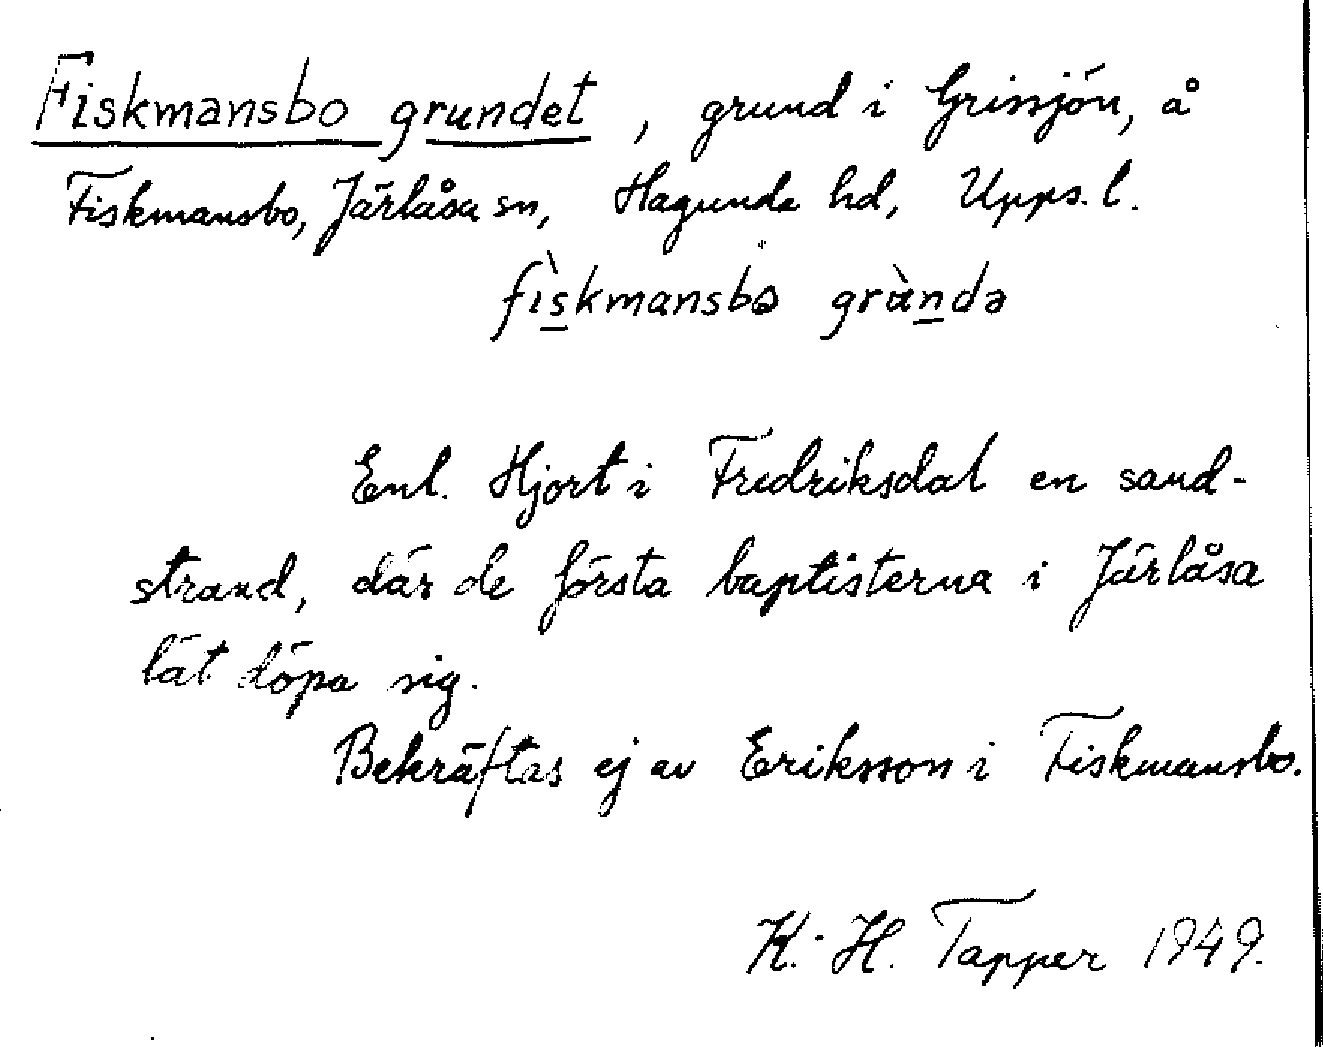 Fiskmansbo grundet, grund i Grissjön, å
Fiskmansbo, Järlåsa sn, Hagunda hd, Upps. l.
fìskmansbə gràndə
Enl. Hjort i Fredriksdal en sand-
strand, där de första baptisterna i Järlåsa
lät döpa sig.
Bekräftas ej av Eriksson i Fiskmansbo.
K.-H. Tapper 1949.